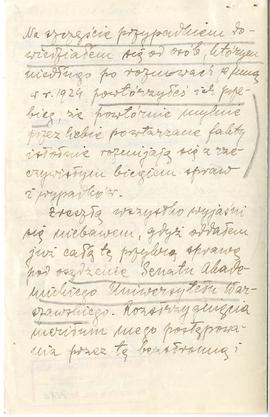 Na szczęście przypadkiem do-
wiedziałem się od osób, którym
niedługo po rozmowach z Panią
w r. 1924 powtórzyłeś ich prze-
bieg, że powtórnie mylnie
przez Ciebie powtarzane fakty
istotnie rozmijają się z rze-
czywistym biegiem spraw
i wypadków.
Zresztą wszystko wyjaśni
się niebawem, gdyż oddałem
już całą tę przykrą sprawę
pod osądzenie Senatu Akade-
mickiego Uniwersytetu War-
szawskiego. Rozstrzygnięcia
meritum mego postępowa-
nia przez tę bezstronną i